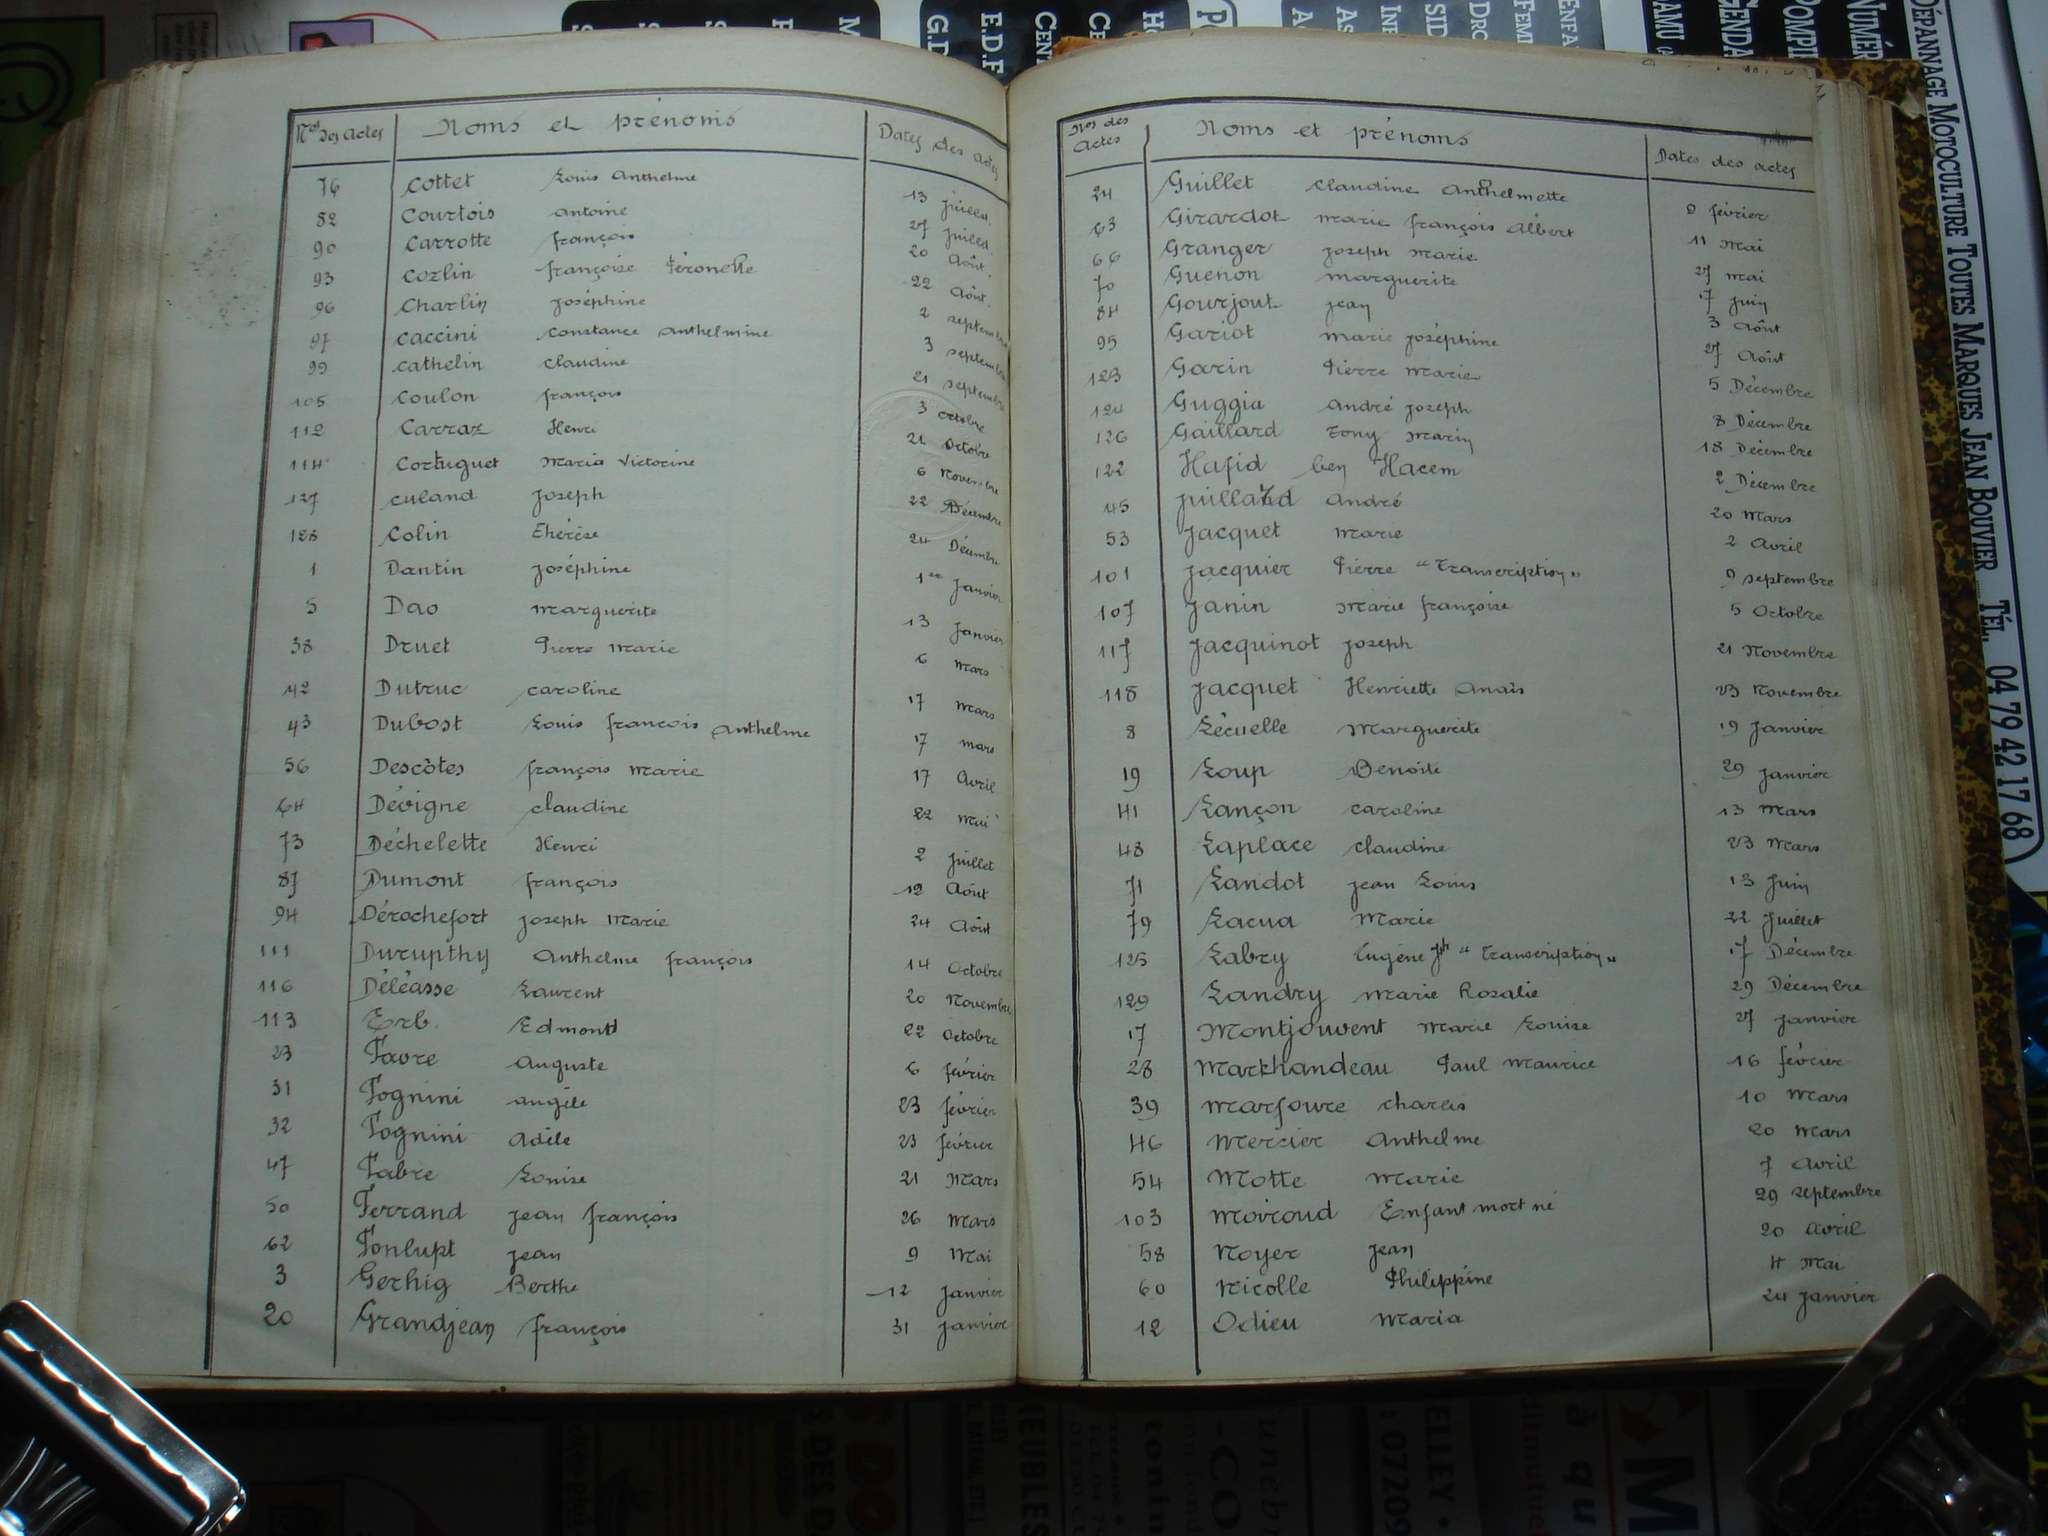 Nos des actes Noms et prénoms Dates des actes
76 Cottet Louis Anthelme 13 juillet
82 Courtois Antoine 27 juillet
90 Carrotte françois 20 Août
93 Cozlin françoise Péronette 22 Août
96 Charlin Joséphine 2 septembre
97 Caccini Constance Anthelmine 3 septembre
99 Cathelin Claudine 21 septembre
105 Coulon françois 3 octobre
112 Carraz Henri 21 Octobre
114 Cortuguet Maria Victorine 6 Novembre
127 Culand Joseph 22 Décembre
128 Colin Thérèse 24 Décembre
1 Dantin Joséphine 1er Janvier
5 Dao Marguerite 13 Janvier
38 Druet Pierre Marie 6 Mars
42 Dutruc Caroline 17 Mars
43 Dubost Louis françois Anthelme 17 mars
56 Descôtes françois Marie 17 Avril
64 Dévigne Claudine 22 Mai
73 Déchelette Henri 2 Juillet
87 Dumont françois 12 Août
94 Dérochefort Joseph Marie 24 Août
111 Durupthy Anthelme françois 14 Octobre
116 Déléasse Laurent 20 Novembre
113 Erb Edmond 22 Octobre
23 Favre Auguste 6 février
31 Fognini Angèle 23 février
32 Fognini Adèle 23 février
47 Fabre Louise 21 Mars
50 Ferrand Jean françois 26 Mars
62 Fonlupt Jean 9 Mai
3 Gerhig Berthe 12 Janvier
20 Grandjean françois 31 Janvier
Nos des Actes Noms et prénoms Dates des actes
24 Guillet Claudine Anthelmette 9 février
63 Girardot Marie françois Albert 11 Mai
66 Granger Joseph Marie 27 Mai
70 Guenon Marguerite 7 Juin
84 Gourjout Jean 3 Août
95 Gariot Marie Joséphine 27 Août
123 Garin Pierre Marie 5 Décembre
124 Guggia André Joseph 8 Décembre
126 Gaillard Tony Marin 18 Décembre
122 Hafid ben Hacem 2 Décembre
45 Juillard André 20 Mars
53 Jacquet Marie 2 Avril
101 Jacquier Pierre "Transcription" 9 septembre
107 Janin Marie françoise 5 Octobre
117 Jacquinot Joseph 21 Novembre
118 Jacquet Henriette Anaïs 23 Novembre
8 Lécuelle Marguerite 19 Janvier
19 Loup Benoite 29 Janvier
41 Lançon Caroline 13 Mars
48 Laplace Claudine 23 Mars
71 Landot Jean Louis 13 Juin
79 Lacua Marie 22 Juillet
125 Labry Eugène Jph "Transcription" 17 Décembre
129 Landry Marie Rosalie 29 Décembre
17 Montjouvent Marie Louise 27 Janvier
28 Markhandeau Paul Maurice 16 février
39 Marfoure Charles 10 Mars
46 Mercier Anthelme 20 Mars
54 Motte Marie 7 Avril
103 Moiroud Enfant mort né 29 septembre
58 Noyer Jean 20 Avril
60 Nicolle Philippine 4 Mai
12 Odieu Maria 24 Janvier
DÉPANNAGE MOTOCULTURE TOUTES MARQUES JEAN BOUVIER TÉL. 04 79 42 17 68